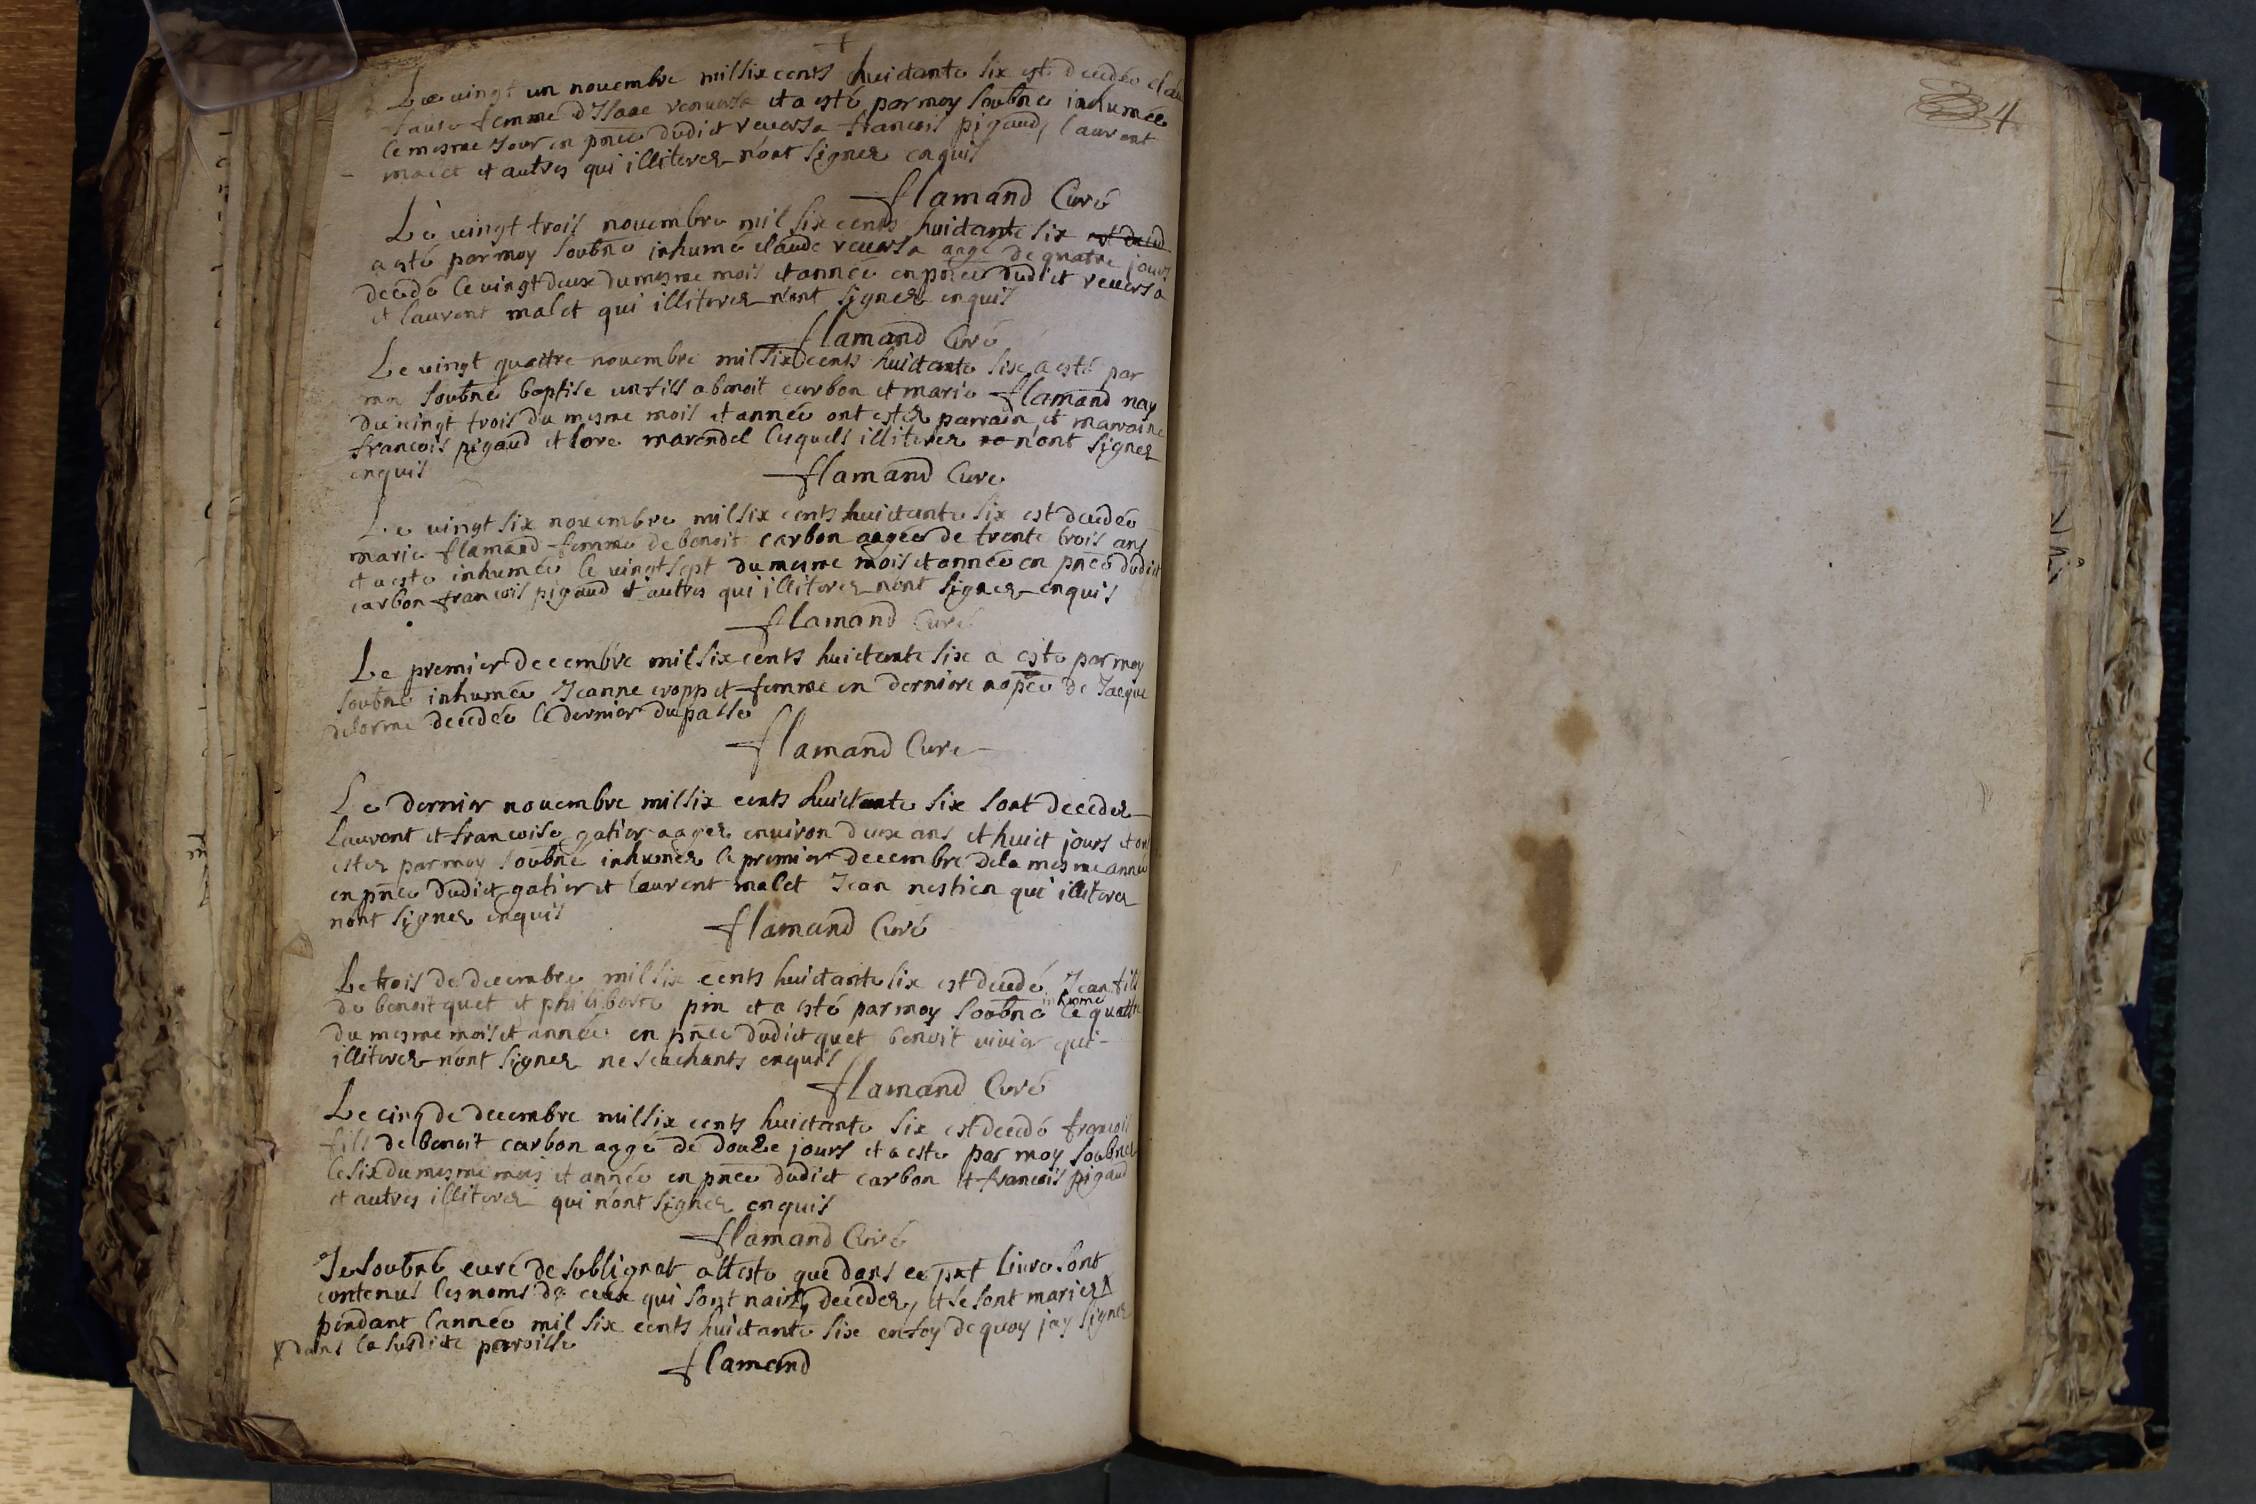 Le vingt un novembre mil six cents huictante six est decedée
femme d'Isaac et a esté par moy soubne inhumée
le mesme Jour en pnce dudict reversa francois pigaud, laurent
malet et autres qui illiterez n'ont signer enquis
flamand Curé
Le vingt trois novembre mil six cents huictante six est deced
a esté par moy soubne inhumé claude reversa aagé de quatre jours
decedé le vingt deux du mesme mois et année en pnce dudict reversa
et laurent malet qui illiterez n'ont signer enquis
flamand Curé
Le vingt quattre novembre mil six cents huictante six a esté par
moy soubne baptise un fils a benoit carbon et marie flamand nay
du vingt trois du mesme mois et année ont estez parrain et marraine
francois pigaud et lore marendel lesquels illiterez n'ont signer
enquis
flamand Cure
Le vingt six novembre mil six cents huictante six est decedée
marie flamand femme de benoit carbon aagée de trente trois ans
et a esté inhumée le vingt sept du mesme mois et année en pnce dudict
carbon francois pigaud et autres qui illiterez n'ont signer enquis
flamand Curé
Le premier decembre mil six cents huictante six a esté par moy
soubne inhumée Jeanne croppet femme en derniere nopce de Jacque
delorme decedée le dernier du passé
flamand Cure
Le dernier novembre mil six cents huictante six sont decedez
laurent et francoise gatier aagez environ deux ans et huict jours et ont
estez par moy soubne inhumez le premier decembre de la mesme année
en pnce dudict gatier et laurent malet Jean nestien qui illiterez
n'ont signer enquis
flamand Curé
Le trois de decembre mil six cents huictante six est decedé Jean fils
de benoit quet et philiberte pin et a esté par moy soubne inhumé le quattre
du mesme mois et année en pnce dudict quet benoit vivier qui
illiterez n'ont signer ne scachants enquis
flamand Curé
Le cinq de decembre mil six cents huictante six est decedé francois
fils de benoit carbon aagé de douze jours et a esté par moy soubne
le six du mesme mois et année en pnce dudict carbon et francois pigaud
et autres illiterez qui n'ont signer enquis
flamand Curé
Je soubné curé de soblignat atteste que dans ce pnt livre sont
contenus les noms de ceux qui sont naiz, decedez, et se sont mariez X
pendant l'année mil six cents huictante six en foy de quoy jay signer
X dans la susdicte parroisse
flamand
4